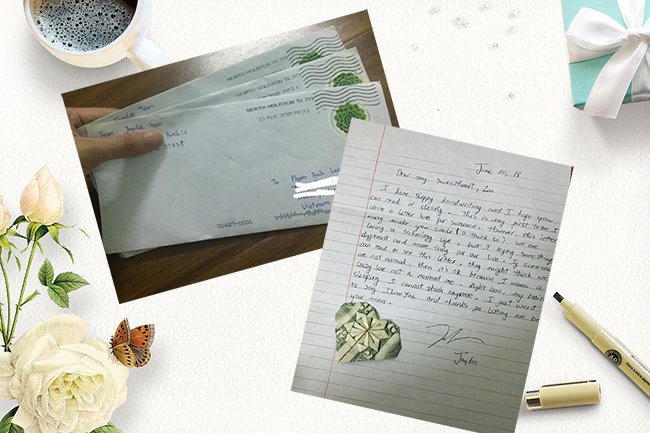 NORTH HOUSTON TX 773
NORTH HOUSTON TX 773
NORTH HOUSTON TX 773
13 AUG 2018 PM 3 L
From: Jaydee Tran
To: Pham Bich
Vietnam
00427-0001
June 10, 18
Dear my sweetheart,
I have sloppy handwriting and I hope you
can read it clearly. This is my first time I
write a letter love for someone. However, this letter
many make you smile (I think so). We are
living a technology life, but I trying something
different and more crazy for our love. If someone
can read or see this letter, they might think we
are not normal, then it's OK because I wanna a
crazy love not a normal one. Right now, my brain
sleeping I cannot think anymore. I just want
to say I love you and thanks for letting me be
your man.
Jaydee